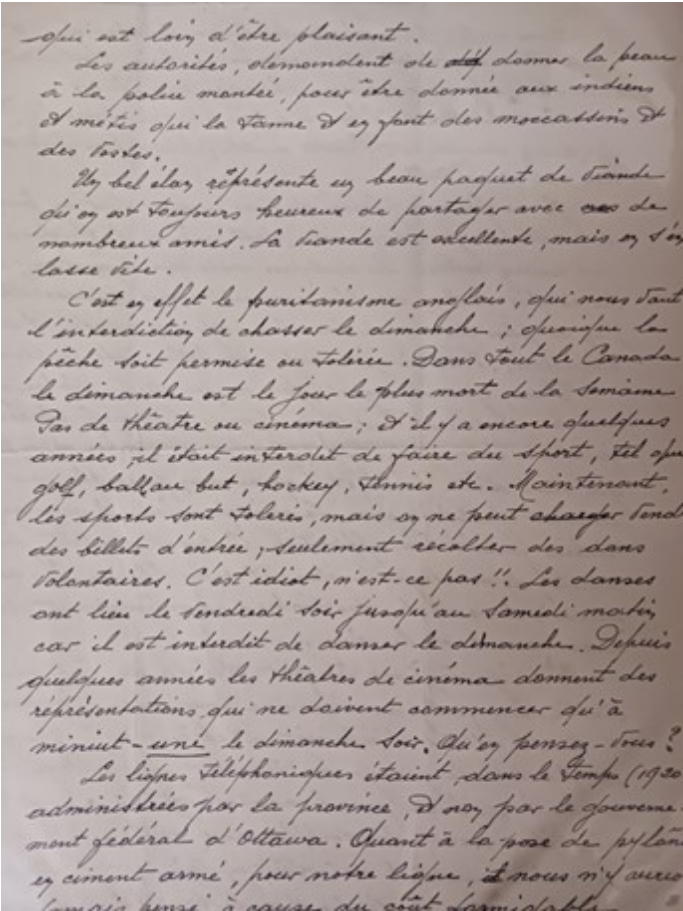 qui est loin d'être plaisant.
Les autorités, demandent de donner la peau
à la police montée, pour être donnée aux indiens
et métis qui la tanne et en font des moccassins et
des vestes.
Un bel élan réprésente un beau paquet de viande
qu'on est toujours heureux de partager avec de
nombreux amis. La viande est excellente, mais on s'en
lasse vite.
C'est en effet le puritanisme anglais, qui nous vaut
l'interdiction de chasser le dimanche ; quoique la
pêche soit permise ou tolérée. Dans tout le Canada
le dimanche est le jour le plus mort de la semaine
Pas de théatre ou cinéma ; et il y a encore quelques
années, il était interdit de faire du sport, tel que
golf, ball au but, hockey, tennis etc. Maintenant,
les sports sont tolerés, mais on ne peut charger vend
des billets d'entrée ; seulement récolter des dons
volontaires. C'est idiot, n'est-ce pas !!. Les danses
ont lieu le vendredi soir jusqu'au samedi matin
car il est interdit de danser le dimanche. Depuis
quelques années les théatres de cinéma donnent des
réprésentations qui ne doivent commencer qu'à
minuit-une le dimanche soir. Qu'en pensez-vous ?
Les lignes téléphoniques étaient, dans le temps (1920
administrées par la province, et non par le gouverne-
ment fédéral d'Ottawa. Quant à la pose de pylôn
en ciment armé, pour notre ligne, nous n'y aurio
jamais pensé à cause du coût formidable